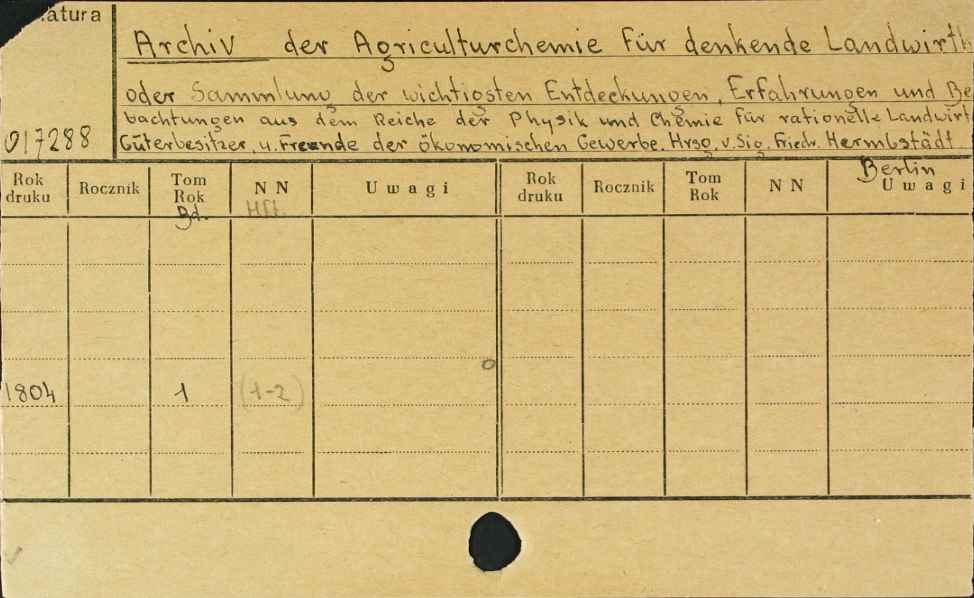 atura
Archiv der Agriculturchemie für denkende Landwirth
oder Sammlung der wichtigsten Entdeckungen, Erfahrungen und Be
bachtungen aus dem Reiche der Physik und Chemie für rationelle Landwirt
017288 Güterbesitzer, u. Freunde der ökonomischen Gewerbe. Hrsg. v. Sig. Friedr. Hermbstädt
Berlin
Rok druku Rocznik Tom Rok Bd. N N Hft. Uwagi Rok druku Rocznik Tom Rok N N Uwagi
1804 1 (1-2)